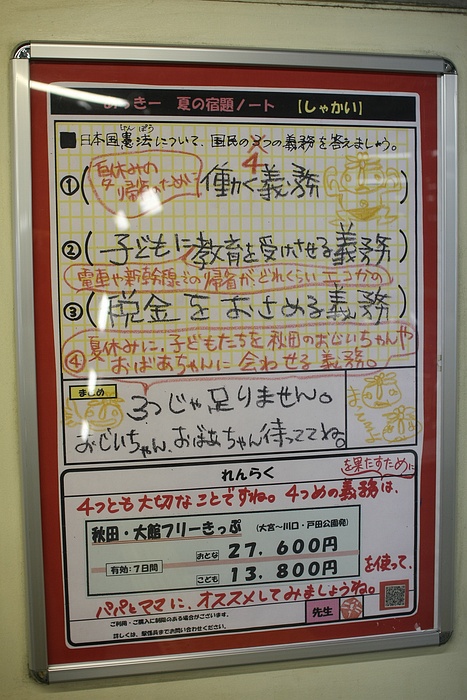 きー 夏の宿題ノート 【しゃかい】
■日本国憲法について、国民の3つの義務を答えましょう。
けんぽう
4
①(夏休みの帰省のために働く義務)
②(子どもに教育を受けさせる義務)
電車や新幹線での帰省がどれくらいエコかの
③(税金をおさめる義務)
④夏休みに、子どもたちを秋田のおじいちゃんや
おばあちゃんに会わせる義務。
まとめ
3つじゃ足りません。
おじいちゃん、おばあちゃん待っててね。
れんらく
を果たすために
4つとも大切なことですね。4つめの義務は、
秋田・大館フリーきっぷ (大宮～川口・戸田公園発)
有効:7日間
おとな 27,600円
こども 13,800円
を使って、
パパとママに、オススメしてみましょうね。
ご利用・ご購入に制限のある場合がございます。
詳しくは、駅係員までお問い合わせください。
先生